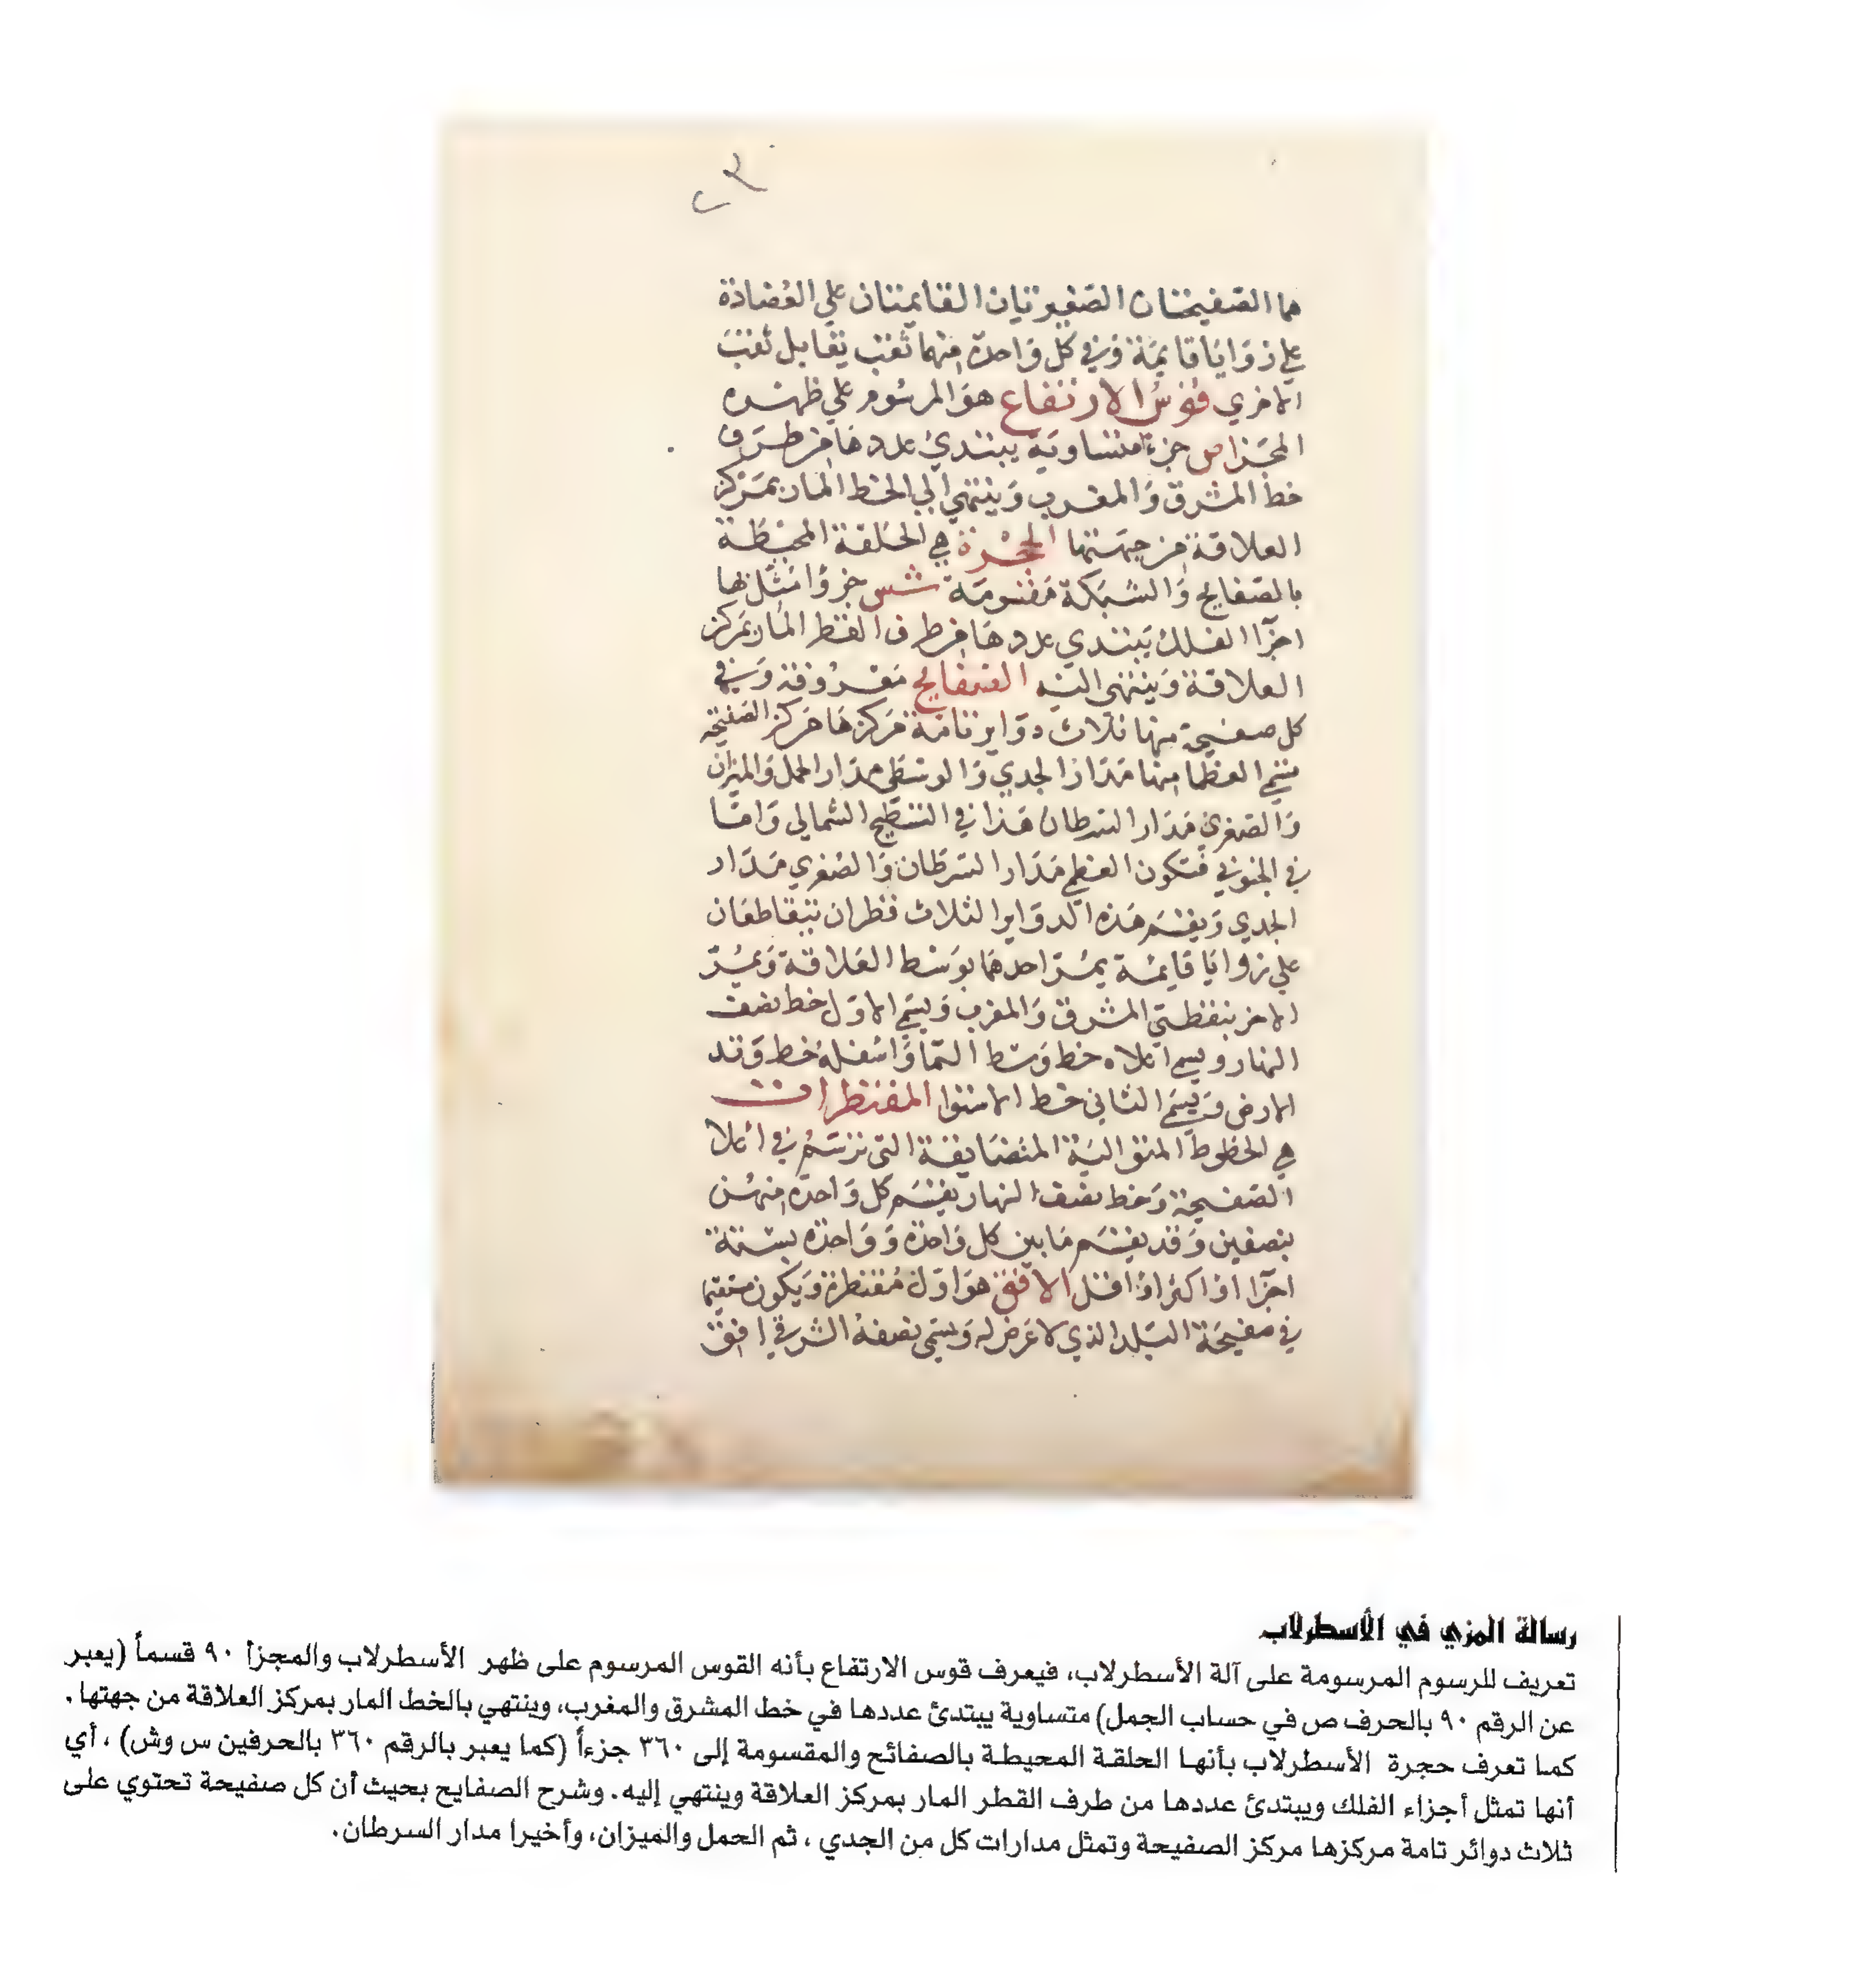 هما الصفيحتان الصغيرتان القايمتان علي العضادة
علي زوايا قايمة وفي كل واحدة منهما ثقب يقابل ثقب
الاخري قوس الارتفاع هو المرسوم علي ظهره
المجزا ص جزءا متساوية يبتدئ عددها من طرف
خط المشرق والمغرب وينتهي الي الخط المار بمركز
العلاقة من جهتها الحجرة هي الحلقة المحيطة
بالصفايح والشبكة مقسومة شس جزوا مثلها
اجزاا الفلك يبتدي عددها من طرف القطر المار بمركز
العلاقة وينتهي اليه الصفايح معروفة وفي
كل صفيحة منها ثلاث دواير تامة مركزها مركز الصفيحة
تسمي العظما منها مدار الجدي والوسطي مدار الحمل والميزان
والصغري مدار السرطان هذا في التسطيح الشمالي واما
في الجنوبي فتكون العظمي مدار السرطان والصغري مدار
الجدي ويقسم هذه الدواير الثلاث قطران يتقاطعان
علي زوايا قايمة يمر احدهما بوسط العلاقة ويمر
الاخر بنقطتي المشرق والمغرب ويسمي الاول خط نصف
النهار ويسمي اعلاه خط وسط السما واسفله خط وتد
الارض ويسمي الثاني خط الاستوا المقنطرات
هي الخطوط المتوالية المتضايقة التي ترتسم في اعلا
الصفيحة وخط نصف النهار يقسم كل واحدة منهن
بنصفين وقد يقسم ما بين كل واحدة وواحدة بستة
اجزا او اكثر او اقل الافق هو اول مقنطرة ويكون مستقيما
في صفيحة البلد الذي لا عرض له ويسمي نصفه الشرقي افق
رسالة المزي في الأسطرلاب
تعريف للرسوم المرسومة على آلة الأسطرلاب، فيعرف قوس الارتفاع بأنه القوس المرسوم على ظهر الأسطرلاب والمجزأ ٩٠ قسماً (يعبر
عن الرقم ٩٠ بالحرف ص في حساب الجمل) متساوية يبتدئ عددها في خط المشرق والمغرب، وينتهي بالخط المار بمركز العلاقة من جهتها.
كما تعرف حجرة الأسطرلاب بأنها الحلقة المحيطة بالصفائح والمقسومة إلى ٣٦٠ جزءاً (كما يعبر بالرقم ٣٦٠ بالحرفين س وش) ، أي
أنها تمثل أجزاء الفلك ويبتدئ عددها من طرف القطر المار بمركز العلاقة وينتهي إليه. وشرح الصفايح بحيث أن كل صفيحة تحتوي على
ثلاث دوائر تامة مركزها مركز الصفيحة وتمثل مدارات كل من الجدي ، ثم الحمل والميزان، وأخيرا مدار السرطان.